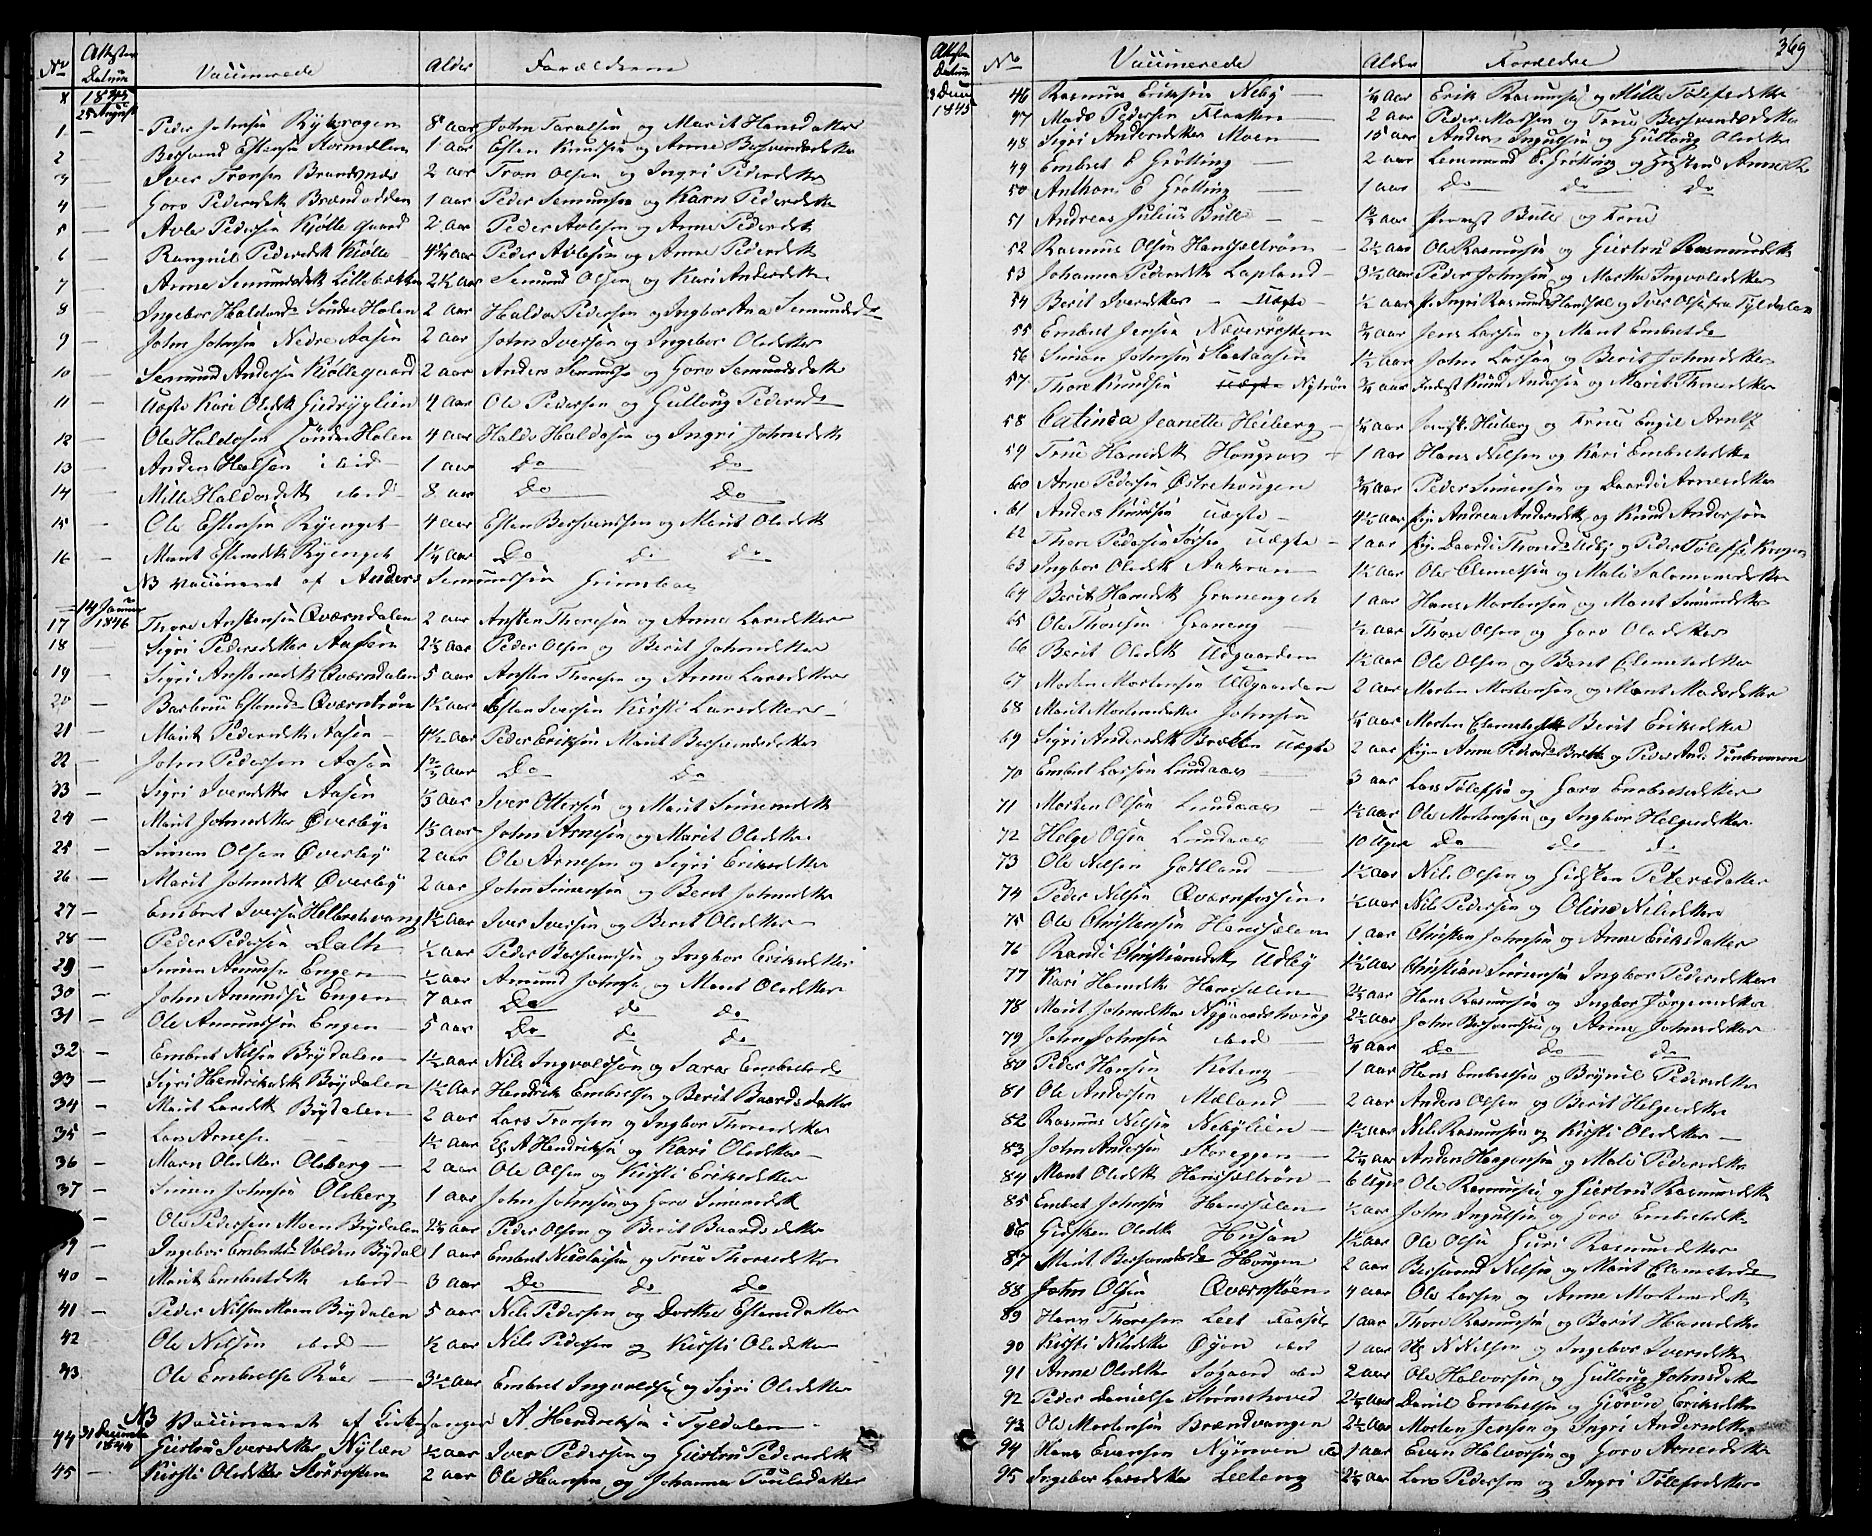 No Attesten Datum Vaccinerede Alder Forældrene
1845
25 August
1 — Peder Johnsen 8 aar John Taralsen og Marit Hansdatter
2 — Bersvend Estensen 1 aar Esten Knudsen og Anne Bersvendsdatter
3 — Iver Tronsen Brandsnes 2 aar Tron Olsen og Ingri Pedersdtr
4 — Goro Pedersdtr Brændodden 1 aar Peder Semundsen og Karn Pedersdtr
5 — Avle Pedersen Kjøllegaard 2 aar Peder Avlesen og Anne Pedersdtr
6 — Rangnil Pedersdtr Kjølle 4 1/4 aar Peder Avlesen og Anne Pedersdtr
7 — Anne Semundsdtr Lillebækken 2 1/2 aar Semund Olsen og Kari Andersdtr
8 — Ingebor Haldosd Søndre Holen 2 aar Haldo Pedersen og Ingbor Ana Semundsd
9 — John Johnsen Nedre Aasen 2 aar John Iversen og Ingebor Olsdtr
10 — Semund Andersen Kjøllegaard 2 aar Anders Semundsen og Goro Semundsdatter
11 — Uægte Kari Olsdtr 4 aar Ole Pedersen og Gullaug Pedersd
12 — Ole Haldosen Søndre Holen 4 aar Haldo Haldosen og Ingri Johnsdtr
13 — Anders Halsen ibid — 1 aar Do Do
14 — Mille Haldosdtr ibid 8 aar Do Do
15 — Ole Estensen Ryenget 4 aar Esten Bersvendsen og Marit Olsdtr
16 — Marit Estensdtr Ryenget 1 1/4 aar Do Do Do
NB vaccineret af Anders Semundsen Grimsboe
14 Januar 1846
17 Thore Anstensen Qværndalen 2 aar Ansten Thoresen og Anne Larsdtr
18 — Sigri Pedersdtr Aasen 2 2/3 aar Peder Olsen og Berit Johnsdtr
19 — Sigri Anstensdtr Qværndalen 5 aar Ansten Thoresen og Anne Larsdtr
20 — Barbru Estensd Qværnstrøm 1 1/2 aar Esten Iversen Kirsti Larsdtr
21 — Marit Pedersdtr Aasen 4 1/2 aar Peder Eriksen Marit Bersvendsdtr
22 — John Pedersen Aasen 1 2/3 aar Do Do
23 — Sigri Iversdtr Aasen 1/3 aar Iver Ottersen og Marit Simensdtr
24 — Marit Johnsdtr Øverby 1 1/3 aar John Arnesen og Marit Olsdtr
25 — Simen Olsen Øverby 2 aar Ole Arnesen og Sigri Eriksdtr
26 — Marit Johnsdtr Øverby 2 aar John Simensen og Berit Johnsdtr
27 — Embret Iversen 1 1/2 aar Iver Iversen og Berit Olsdtr
28 — Peder Pedersen Dalth 1/2 aar Peder Bersvendsen og Ingbor Eriksdtr
29 — Simen Amundsen Engen 1/2 aar Amund Johnsen og Marit Olsdtr
30 — John Amundsen Engen 7 aar Do Do Do
31 — Ole Amundsen Engen 5 aar Do Do Do
32 — Embret Nilsen Brydalen 1 1/2 aar Nils Ingvoldsen og Sara Embretsd
33 — Sigri Hendriksdtr Brydalen 1 1/2 aar Hendrik Embretsen og Berit Baardsdatter
34 — Marit Larsdtr Brydalen 2 aar Lars Tronsen og Ingbor Thoresdtr
35 — Lars Arnesen 1 1/2 aar A Hendriksen og Kari Olsdtr
36 — Marn Olsdtr Olsberg 2 aar Ole Olsen og Kirsti Eriksdtr
37 — Simen Johnsen Olsberg 1 aar John Johnsen og Goro Simensdtr
— Ole Pedersen Moen Brydalen 2 3/4 aar Peder Olsen og Berit Baardsdtr
39 — Ingebor Embretsd Volden Brydal 1 aar Embret Nicolaisen og Trui Thoresdtr
40 — Marit Embretsdtr ibid 3 aar Do Do Do
41 — Peder Nilsen Moen Brydalen 5 aar Nils Pedersen og Dorthe Estensdatter
42 — Ole Nilsen ibid 1/2 aar Nils Pedersen og Kirsti Olsdtr
43 Ole Embretsen Røe 3 1/2 aar Embret Ingvoldsen og Sigri Olsdtr
NB Vaccineret af Kirkesanger A Hendriksen i Tyldalen
31 December 1844
44 Gjertru Iversdtr Nylæn 1/2 aar Iver Pedersen og Gjertru Pedersdtr
45 — Kirsti Olsdtr 2 aar Ole Hansen og Johanna Poulsdatter
369
Attesten Datum No Vaccinerede Alder Forældre
1845
46 Rasmus Eriksen Neby 1/4 aar Erik Rasmussen og Mille Tolefsdtr
47 Mads Pedersen Floaten 2 aar Peder Madsen og Trui Bersvendsdtr
48 Sigri Andersdtr Moen 15 aar Anders Ingulsen og Gullaug Olsdtr
49 Embret E Grötting 2 aar Grötting og Anne
50 Anthon E Grötting 1 aar Do Do Do
51 Andreas Julius Bull Provst Bull og Frue
52 Rasmus Olsen Hanseltrøen 2 1/2 aar Ole Rasmussen og Giertru Rasmusdtr
53 Johanna Pedersdtr Lapland 3 1/2 aar Peder Johnsen og Martha Ingvoldsdtr
54 Berit Iversdtr Uægte 1/2 aar Ingri Rasmusd Hansæl og Iver Olsen fra Tyldalen
55 Embret Jensen Nævermoen 3/4 aar Jens Larsen og Marit Embretsd
56 Simen Johnsen 1 1/2 aar John Larsen og Berit Johnsdtr
57 Thore Knudsen Uægte Nytrøn 3/4 aar Knud Andersen og Marit Thoresdtr
58 Catinca Jeanette Heiberg 3/4 aar Heiberg og Frue Engel Arntz
59 Trui Hansdtr 1 aar Hans Nilsen og Kari Embretsdtr
60 Arne Pedersen Østrehougen 3/4 aar Peder Simensen og Daardi Arnesdtr
61 Anders Knudsen Uægte 4 1/2 aar Andrea Andersdtr og Knud Andersen
62 Thore Pedersen Uægte 1 aar Daardi Thoresd Udby og Peder Tolefsen
63 Ingbor Olsdtr Aakran 1 1/2 aar Ole Clemetsen og Mali Salomonsdtr
64 Berit Hansdtr Granenget 1 aar Hans Mortensen og Marit Simensdtr
65 Ole Thoresen Graneng 1/2 aar Thore Olsen og Goro Olsdtr
66 Berit Olsdtr Udgaarden 1 1/2 aar Ole Olsen og Berit Clemetsdtr
67 Morten Mortensen Udgaarden 2 aar Morten Mortensen og Marit Madsdtr
68 Marit Mortensdtr 1/4 aar Morten Berit Eriksdtr
69 Sigri Andersdtr Brætten Uægte 2 aar Anne Pedersd og Peder
70 Embret Larsen Lundaas 3 aar Lars Tolefsen og Goro Embretsdtr
71 Morten Olsen Lundaas 1 1/2 aar Ole Mortensen og Ingbor Helgesdtr
72 Helge Olsen Lundaas 10 Uger Do Do Do
73 Ole Nilsen Godtland 1 1/2 aar Nils Olsen og Gidsken Petersdatter
74 Peder Nilsen Qværnfossen 1/2 aar Nils Pedersen og Oline Nilsdtr
75 Ole Christensen Hansælen 1 aar Christen Johnsen og Anne Eriksdatter
76 Randi Christiansdtr Udby 1 1/2 aar Christian Simensen Ingbor Pedersdtr
77 Kari Hansdtr Hansælen 2 2/3 aar Hans Rasmussen og Ingbor Jørgensdtr
78 Marit Johnsdtr Nygaardshoug 2 1/2 aar John Bersvendsen og Anne Johnsdtr
79 John Johnsen ibid 3/4 aar Do Do Do
80 Peder Hansen Koteng 1 aar Hans Embretsen og Brynil Pedersdtr
81 Ole Andersen Mæland 2 aar Anders Olsen og Berit Helgesdtr
82 Rasmus Nilsen Nebylien 1 1/2 aar Nils Rasmussen og Kirsti Olsdtr
83 John Andersen Storeggen 2 1/4 aar Anders Haagensen og Mali Pedersdtr
84 Marit Olsdtr Hanseltrøen 6 Uger Ole Rasmussen og Giertru Rasmusdtr
85 Embret Johnsen Hansælen 1/2 aar John Ingulsen og Goro Embretsdtr
86 Gidsken Olsdtr Husan 1 1/2 aar Ole Olsen Guri Rasmusdtr
87 Marit Bersvendsd Hougen 2 aar Bersvend Nilsen og Marit Clemetsd
88 John Olsen Qværnstøen 4 aar Ole Larsen og Anne Mortensdtr
89 Hans Thoresen Leet 1 aar Thore Rasmussen og Berit Hansdtr
90 Kirsti Nilsdtr Øyan ibid 1 aar N Nilsen og Ingebor Iversdtr
91 Anne Olsdtr Søgaard 2 aar Ole Halvorsen og Gullaug Johnsdtr
92 Peder Danielsen Strømshoved 2 1/4 aar Daniel Embretsen og Eriksdtr
93 Ole Mortensen Brændvangen 2 1/2 aar Morten Jensen og Ingri Andersdtr
94 Hans Evensen Nymoen 1 aar Even Halvorsen og Goro Arnesdtr
95 Ingebor Larsdtr Leeteng 2 1/4 aar Lars Pedersen og Ingri Tolefsdtr